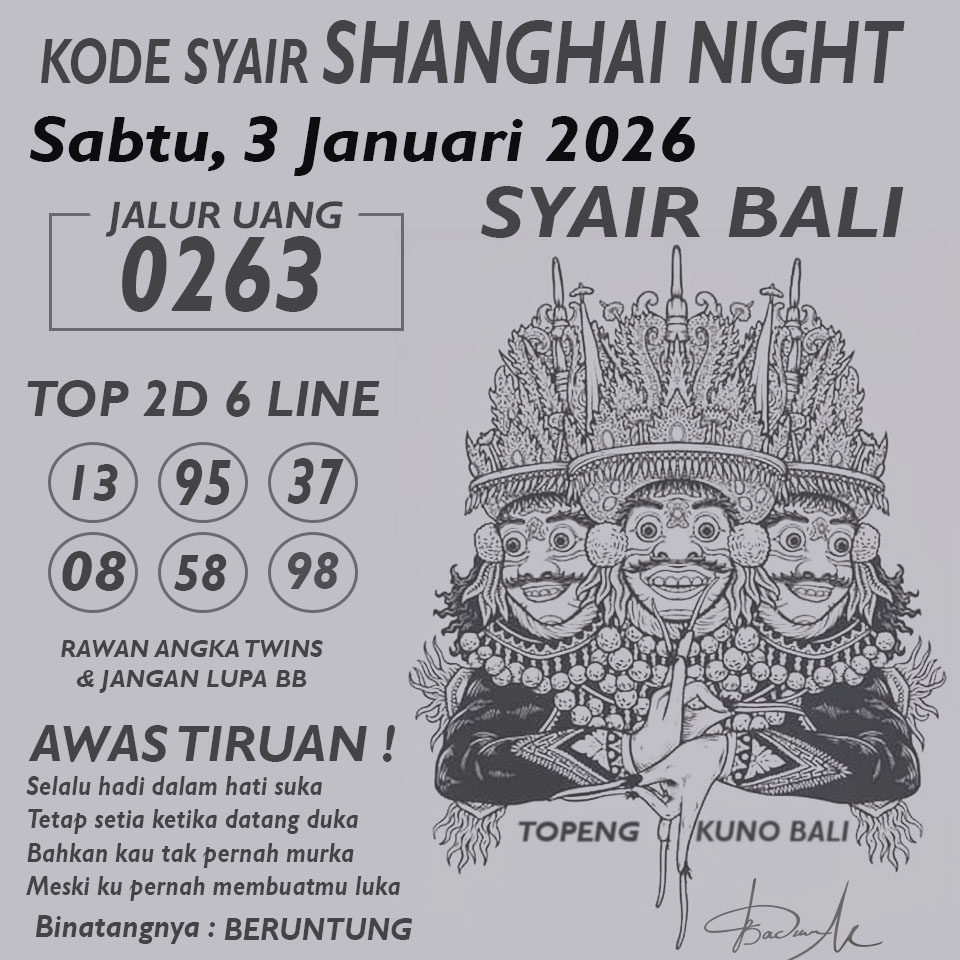 KODE SYAIR SHANGHAI NIGHT
Sabtu, 3 Januari 2026
SYAIR BALI
JALUR UANG
0263
TOP 2D 6 LINE
13 95 37
08 58 98
RAWAN ANGKA TWINS
& JANGAN LUPA BB
AWAS TIRUAN !
Selalu hadi dalam hati suka
Tetap setia ketika datang duka
Bahkan kau tak pernah murka
Meski ku pernah membuatmu luka
Binatangnya : BERUNTUNG
TOPENG KUNO BALI